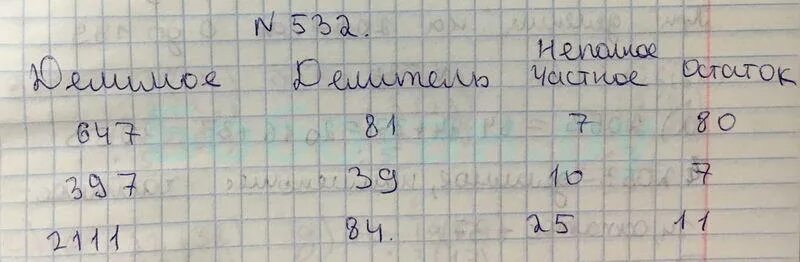 N 532.
Делимое Делитель Неполное частное Остаток
647 81 7 80
397 39 10 7
2111 84. 25 11